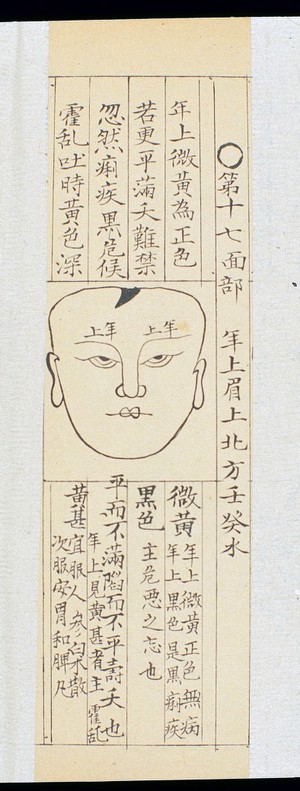 〇第十七面部　年上眉上北方壬癸水
年上微黃為正色
若更平滿夭難禁
忽然痢疾黑危候
霍乱吐時黃色深
年上
年上
微黃 年上微黃正色無病
年上黑色是黑痢疾
黑色 主危惡之忘也
平而不滿陷而不平壽夭也
年上見黃甚者主霍乱
黃甚 宜服人參白朮散
次服安胃和脾凡